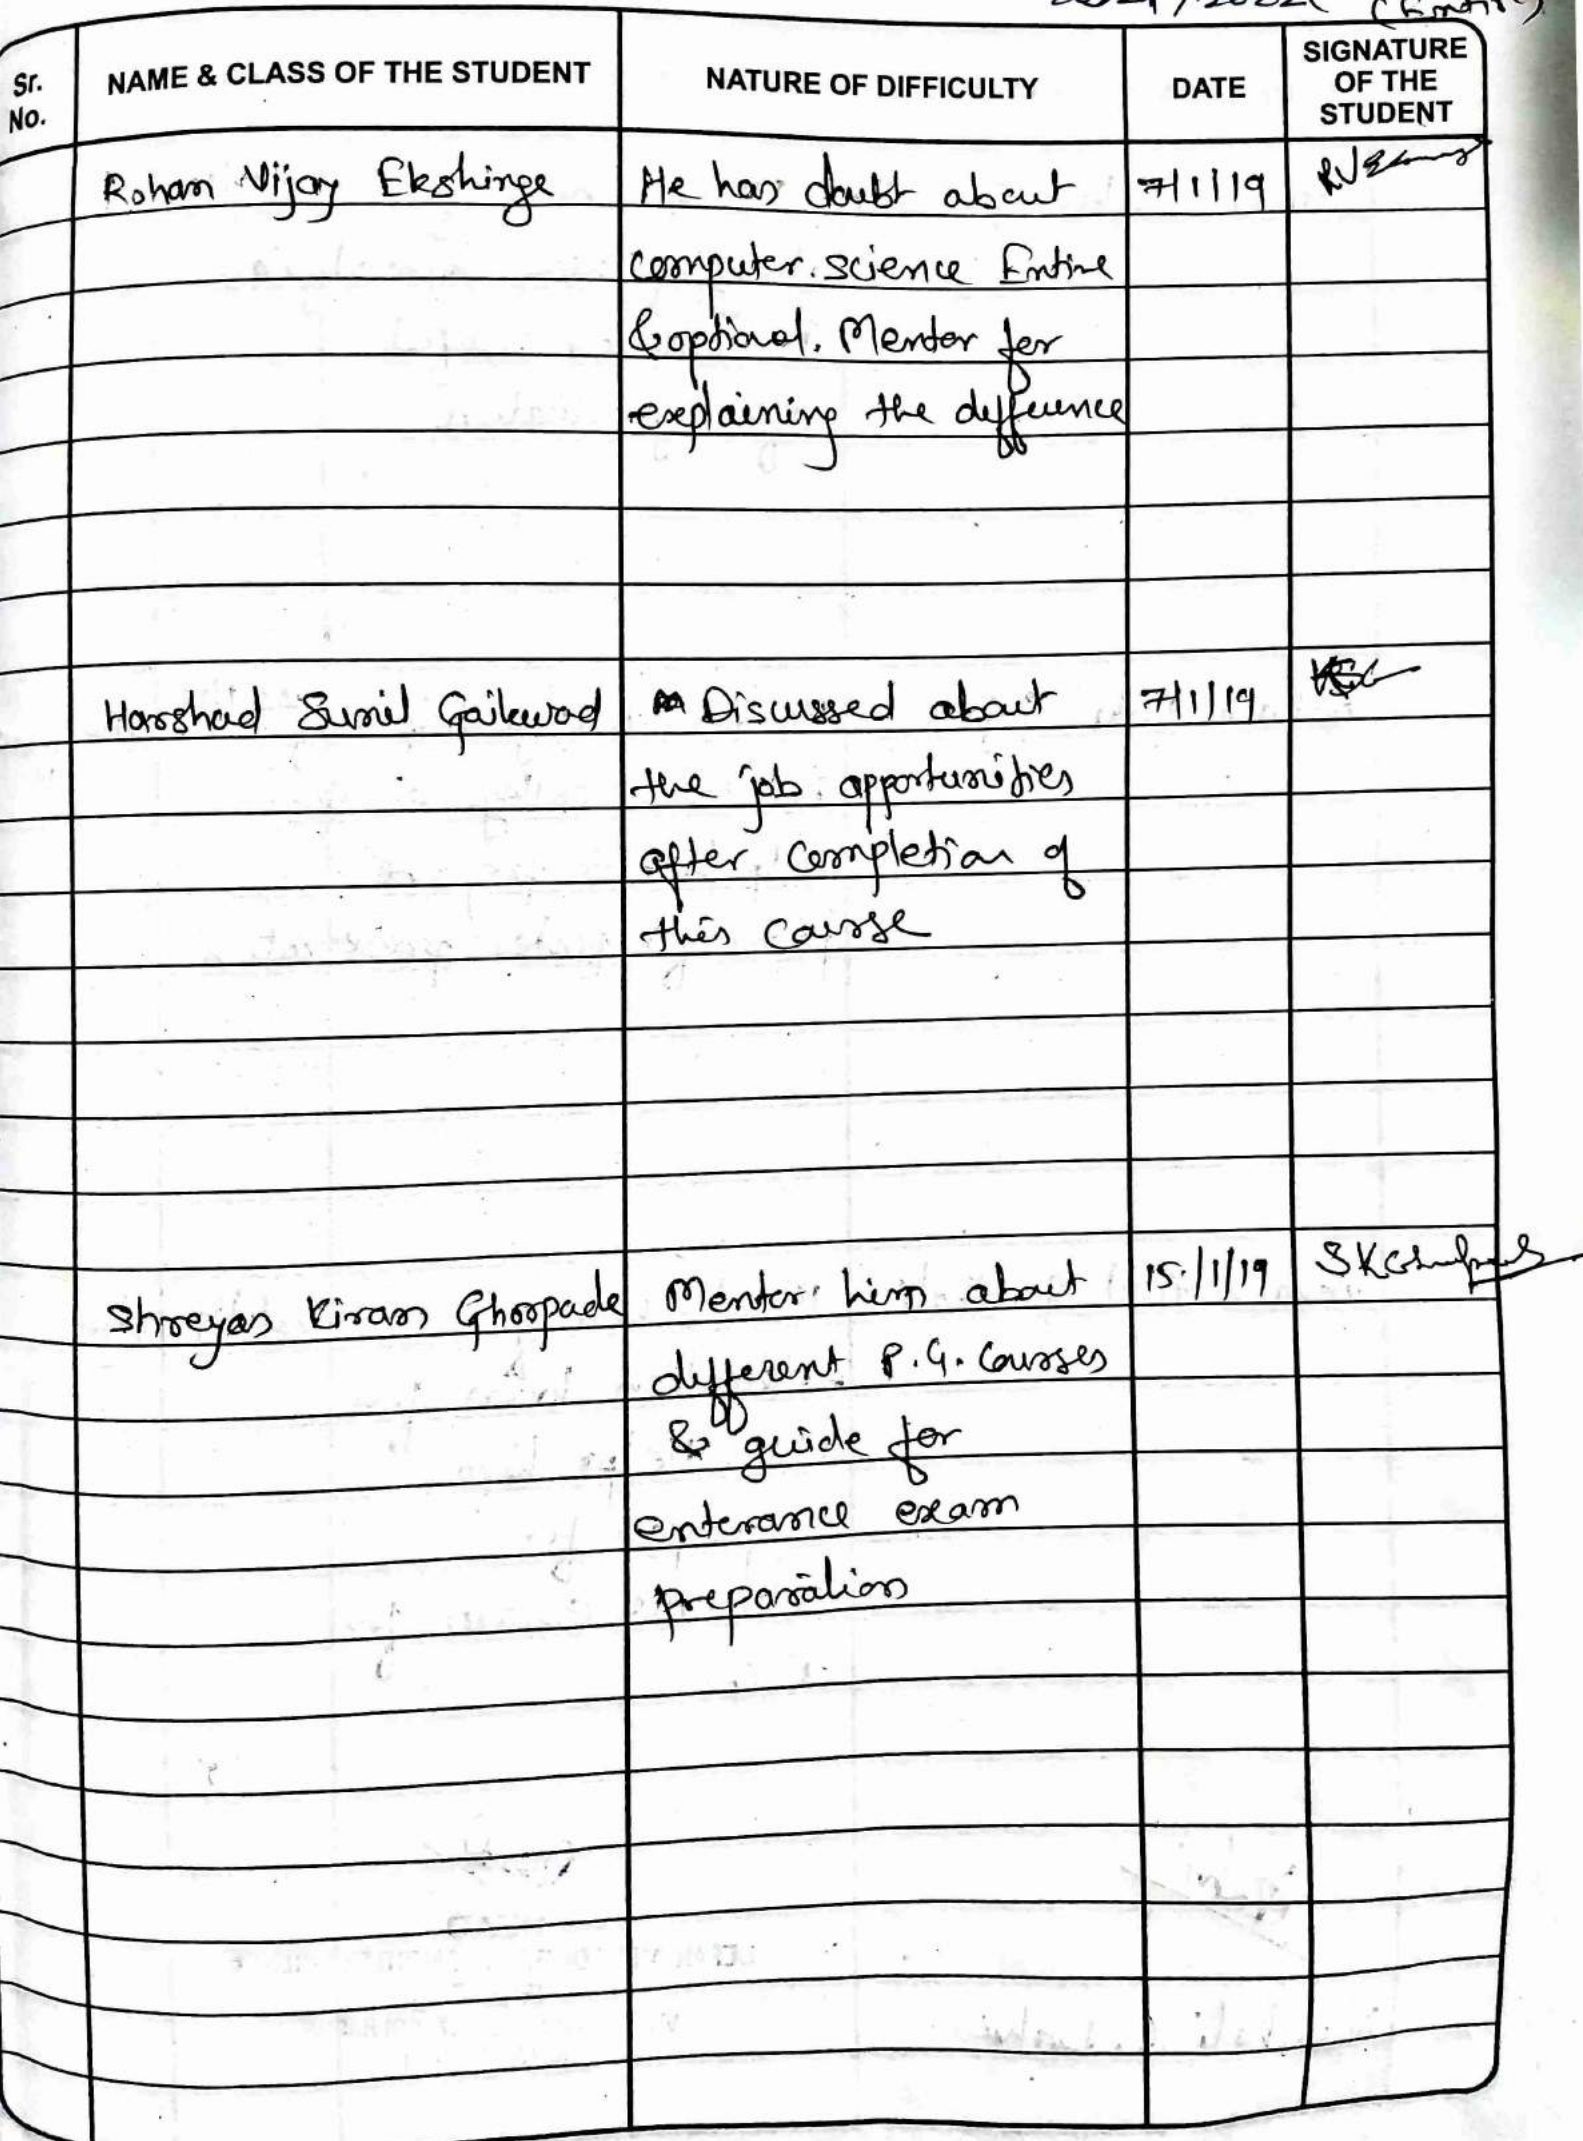 (Entire)
Sr. No.
NAME & CLASS OF THE STUDENT
NATURE OF DIFFICULTY
DATE
SIGNATURE
OF THE
STUDENT
Rohan Vijay Ekshinge
He has doubt about
7/1/19
computer science Entire
& optional. Mentor for
explaining the diffuence
Harshad Sunil Gaikwad
Discussed about
7/1/19
the job opportunities
after completion of
this course
Shreyas Kiran Ghorpade
Mentor him about
15/1/19
different P.G. Courses
& guide for
enterance exam
preparation